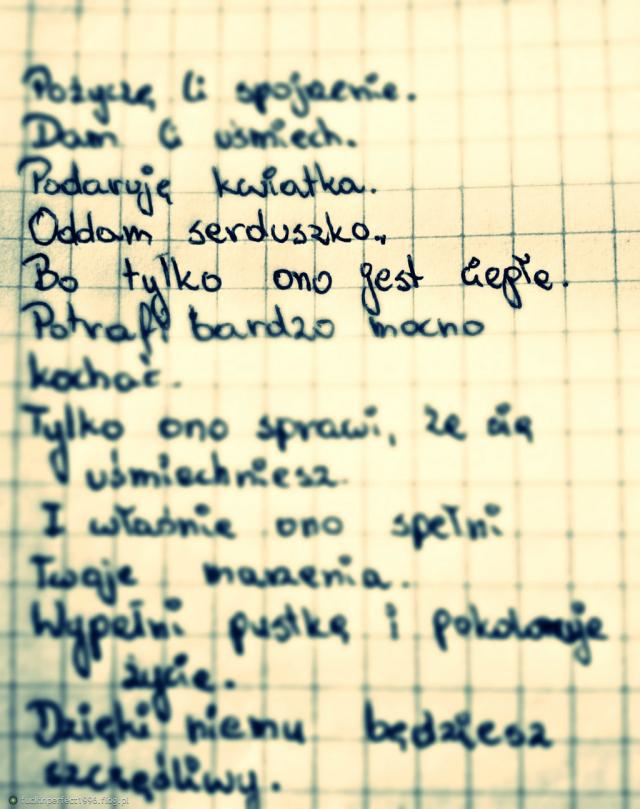 Pożyczę Ci spojrzenie.
Dam Ci uśmiech.
Podaruję kwiatka.
Oddam serduszko.,
Bo tylko ono jest ciepłe.
Potrafi bardzo mocno
kochać.
Tylko ono sprawi, że się
uśmiechniesz.
I właśnie ono spełni
Twoje marzenia.
Wypełni pustkę i pokoloruje
życie.
Dzięki niemu będziesz
szczęśliwy.
fuckinperfect1996.flog.pl